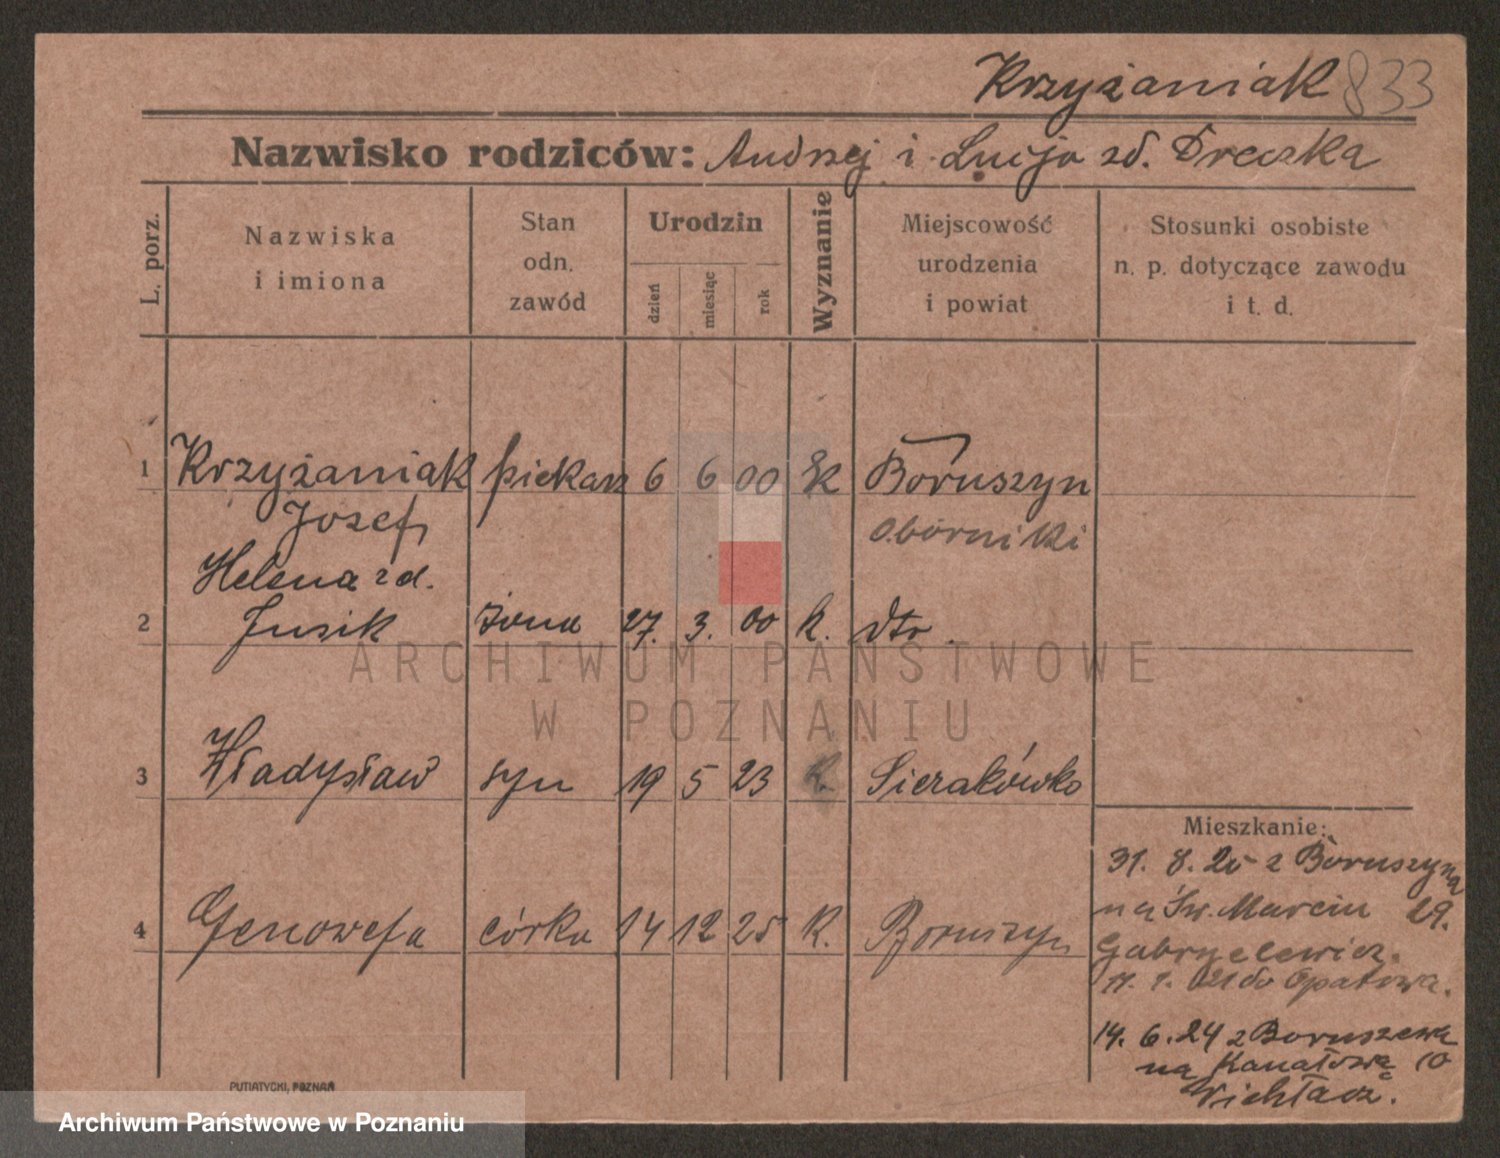 Krzyżaniak 833
Nazwisko rodziców: Andrzej i Lucja zd. Dreczka
L. porz.
Nazwiska
i imiona
Stan
odn.
zawód
Urodzin
dzień
miesiąc
rok
Wyznanie
Miejscowość
urodzenia
i powiat
Stosunki osobiste
n. p. dotyczące zawodu
i t. d.
1 Krzyżaniak piekarz 6 6 00 rk Boruszyn
Josef, Oborniki
Helena zd.
2 Jusik żona 27. 3. 00 k. dto.
ARCHIWUM PAŃSTWOWE
W POZNANIU
3 Władysław syn 19 5 23 k. Sierakówko
Mieszkanie:
31. 8. 20 z Boruszyna
4 Genowefa córka 14 12 25 k. Boruszyn
na Św. Marcin 29.
Gabryelewicz.
11. 1. 21 do Opatowa.
14. 6. 24 z Boruszewa
na Kanałową 10
PUTIATYCKI, POZNAŃ
Archiwum Państwowe w Poznaniu